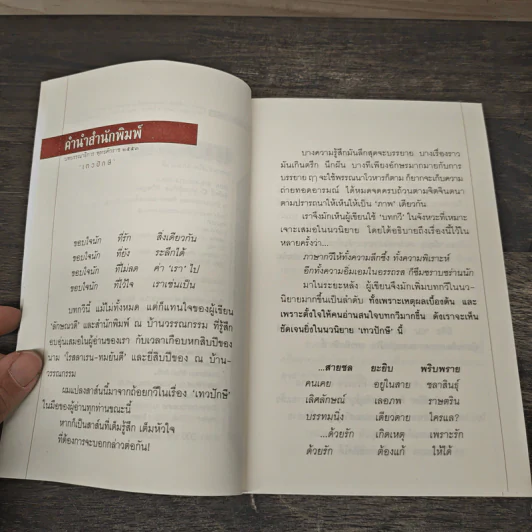 คำนำสำนักพิมพ์
"เทวปักษี"
ขอบใจนัก ที่รัก สิ่งเดียวกัน
ขอบใจนัก ที่ยัง ระลึกได้
ขอบใจนัก ที่ไม่ลด ค่า 'เรา' ไป
ขอบใจนัก ที่ไว้ใจ เราเช่นเป็น
บทกวีนี้ แม้ไม่ทั้งหมด แต่ก็แทนใจของผู้เขียน
'ลักษณวดี' และสำนักพิมพ์ ณ บ้านวรรณกรรม ที่รู้สึก
อบอุ่นเสมอในผู้อ่านของเรา กับเวลาเกือบหกสิบปีของ
นาม 'โรสลาเรน-ทมยันตี' และยี่สิบปีของ ณ บ้าน-
วรรณกรรม
ผมแปลงสาส์นนี้มาจากถ้อยกวีในเรื่อง 'เทวปักษี'
ในมือของผู้อ่านทุกท่านขณะนี้
หากก็เป็นสาส์นที่เต็มรู้สึก เต็มหัวใจ
ที่ต้องการจะบอกกล่าวต่อกัน!
บางความรู้สึกมันลึกสุดจะบรรยาย บางเรื่องราว
มันเกินตรึก นึกฝัน บางทีเพียงอักษรมากมายกับการ
บรรยาย ฤๅ จะใช้พรรณนาโวหารก็ตาม ก็ยากจะเก็บความ
ถ่ายทอดอารมณ์ ได้หมดจดครบถ้วนตามจิตจินตนา
ตามปรารถนาให้เห็นให้เป็น 'ภาพ' เดียวกัน
เราจึงมักเห็นผู้เขียนใช้ 'บทกวี' ในจังหวะที่เหมาะ
เจาะเสมอในนวนิยาย โดยได้อธิบายถึงเรื่องนี้ไว้ใน
หลายครั้งว่า...
ภาษากวีให้ทั้งความลึกซึ้ง ทั้งความไพเราะห์
อีกทั้งความอิ่มเอมในอรรถรส ก็ซึมซราบซร่านนัก
มาในระยะหลัง ผู้เขียนจึงมักเพิ่มบทกวีในนว
นิยายมากขึ้นเป็นลำดับ ทั้งเพราะเหตุผลเบื้องต้น และ
เพราะตั้งใจให้คนอ่านสนใจบทกวีมากขึ้น ดังเราจะเห็น
ชัดเจนยิ่งในนวนิยาย 'เทวปักษี' นี้
...สายชล ยะยิบ พริบพราย
คนเคย อยู่ในสาย ชลาสินธุ์
เลิศลักษณ์ เลอภพ ราษตริน
บรรทมนิ่ง เดียวดาย ใครแล?
...ด้วยรัก เกิดเหตุ เพราะรัก
ด้วยรัก ต้องแก้ ให้ได้